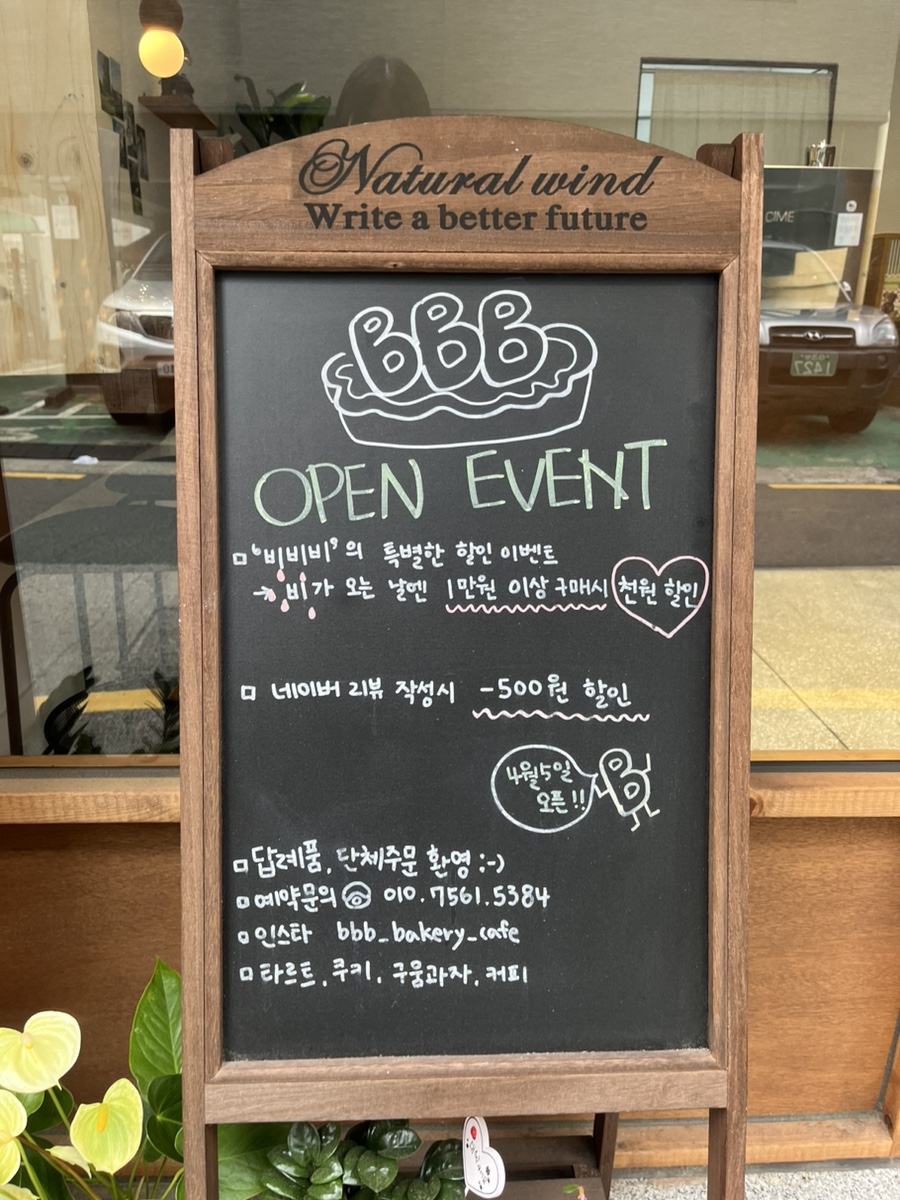 Natural wind
Write a better future
BBB
OPEN EVENT
"비비비"의 특별한 할인 이벤트
→ 비가 오는 날엔 1만원 이상 구매시 천원 할인
네이버 리뷰 작성시 -500원 할인
4월5일
오픈!!
B
답례품, 단체주문 환영 :-)
예약문의 ☎ 010.7561.5384
인스타 bbb_bakery_cafe
타르트, 쿠키, 구움과자, 커피
CIME
1427